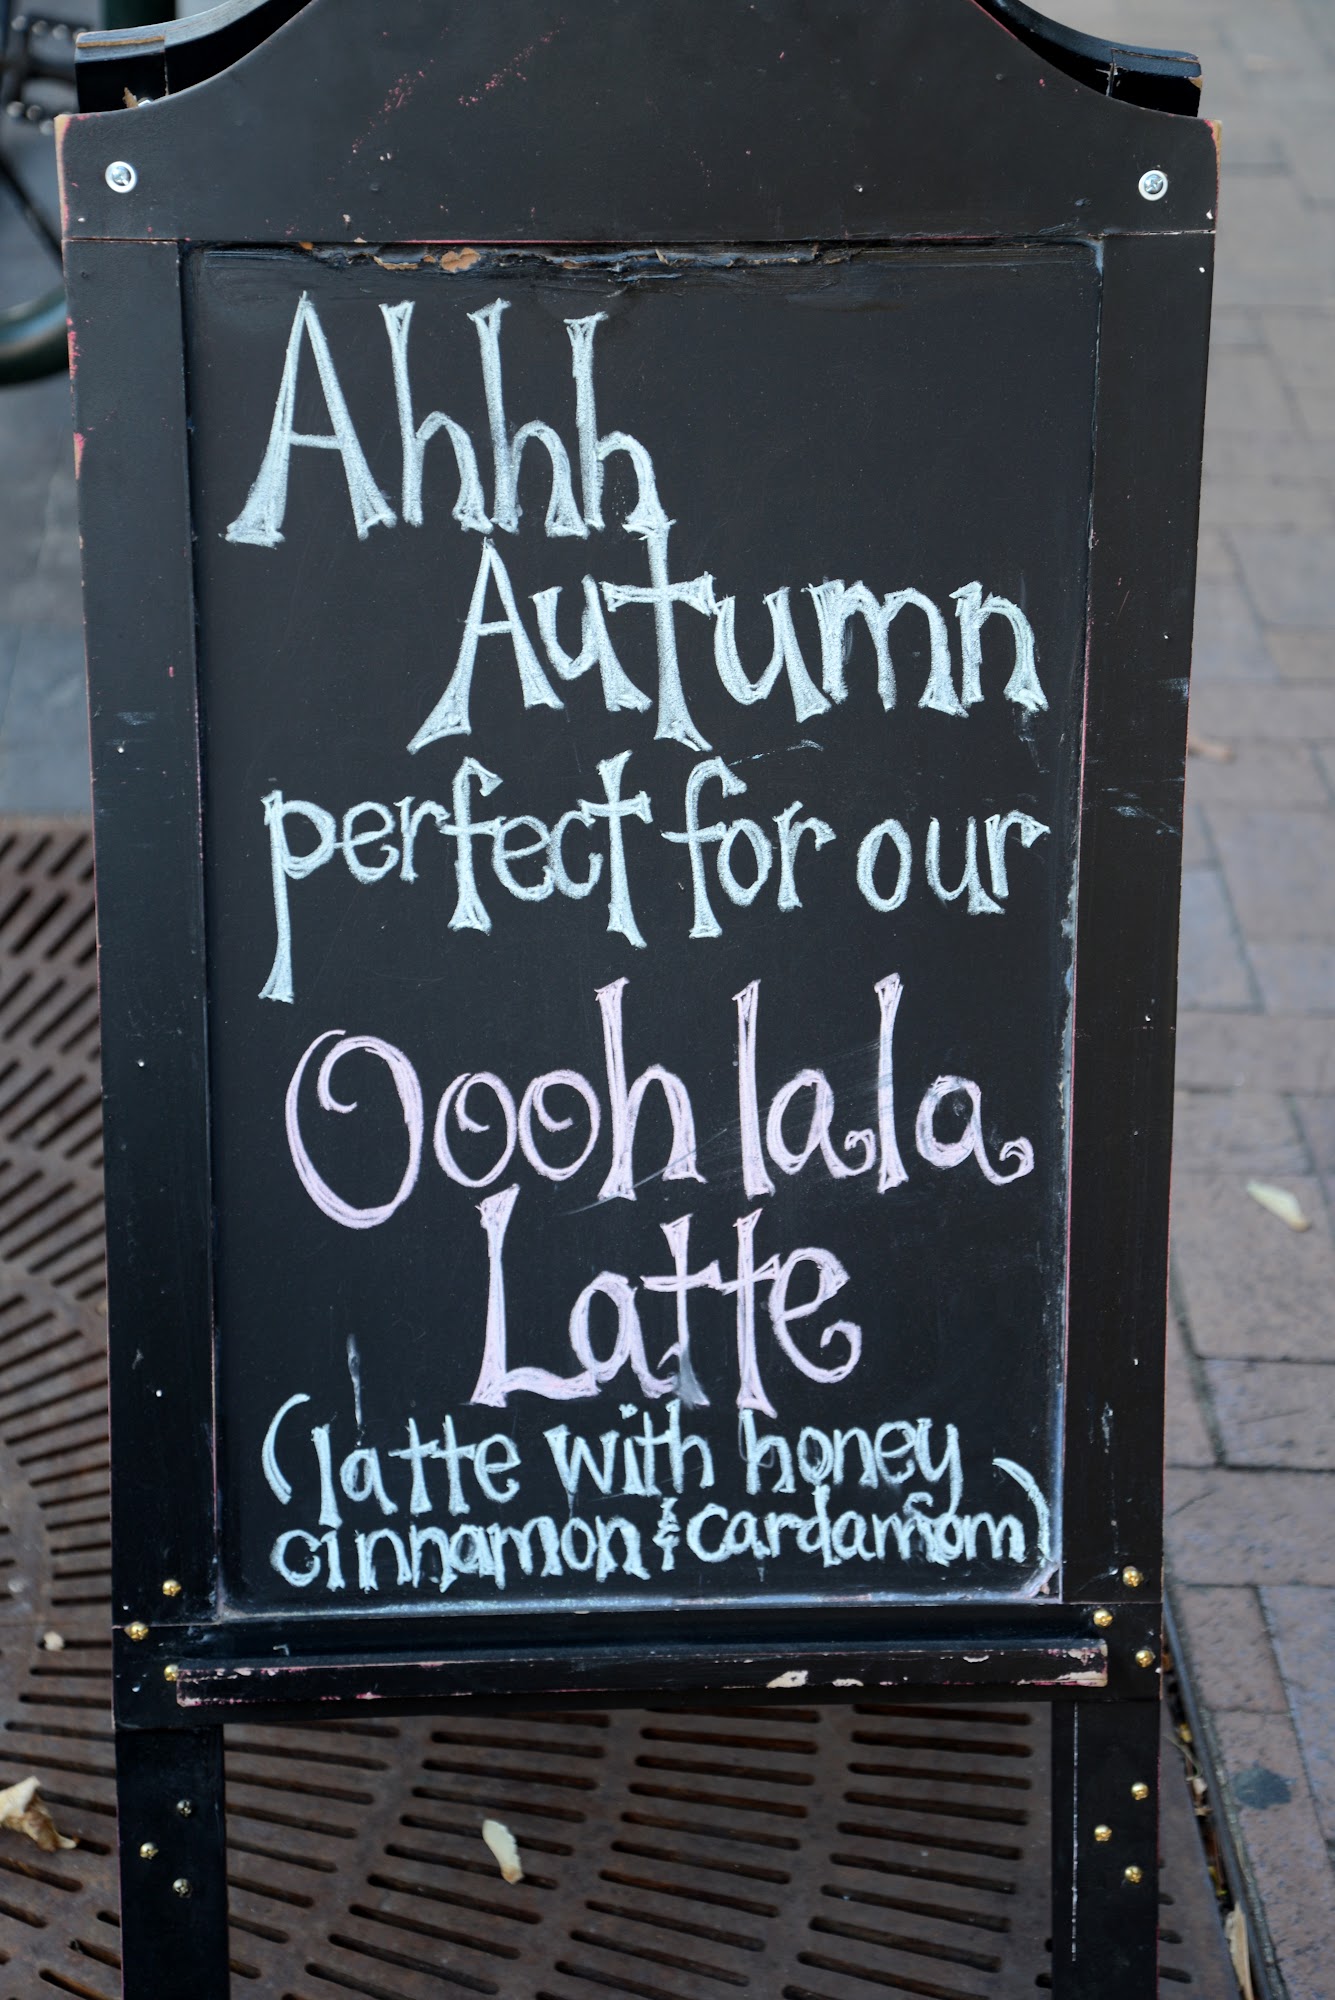 Ahhh
Autumn
perfect for our
Oooh la la
Latte
(latte with honey
cinnamon & cardamom)